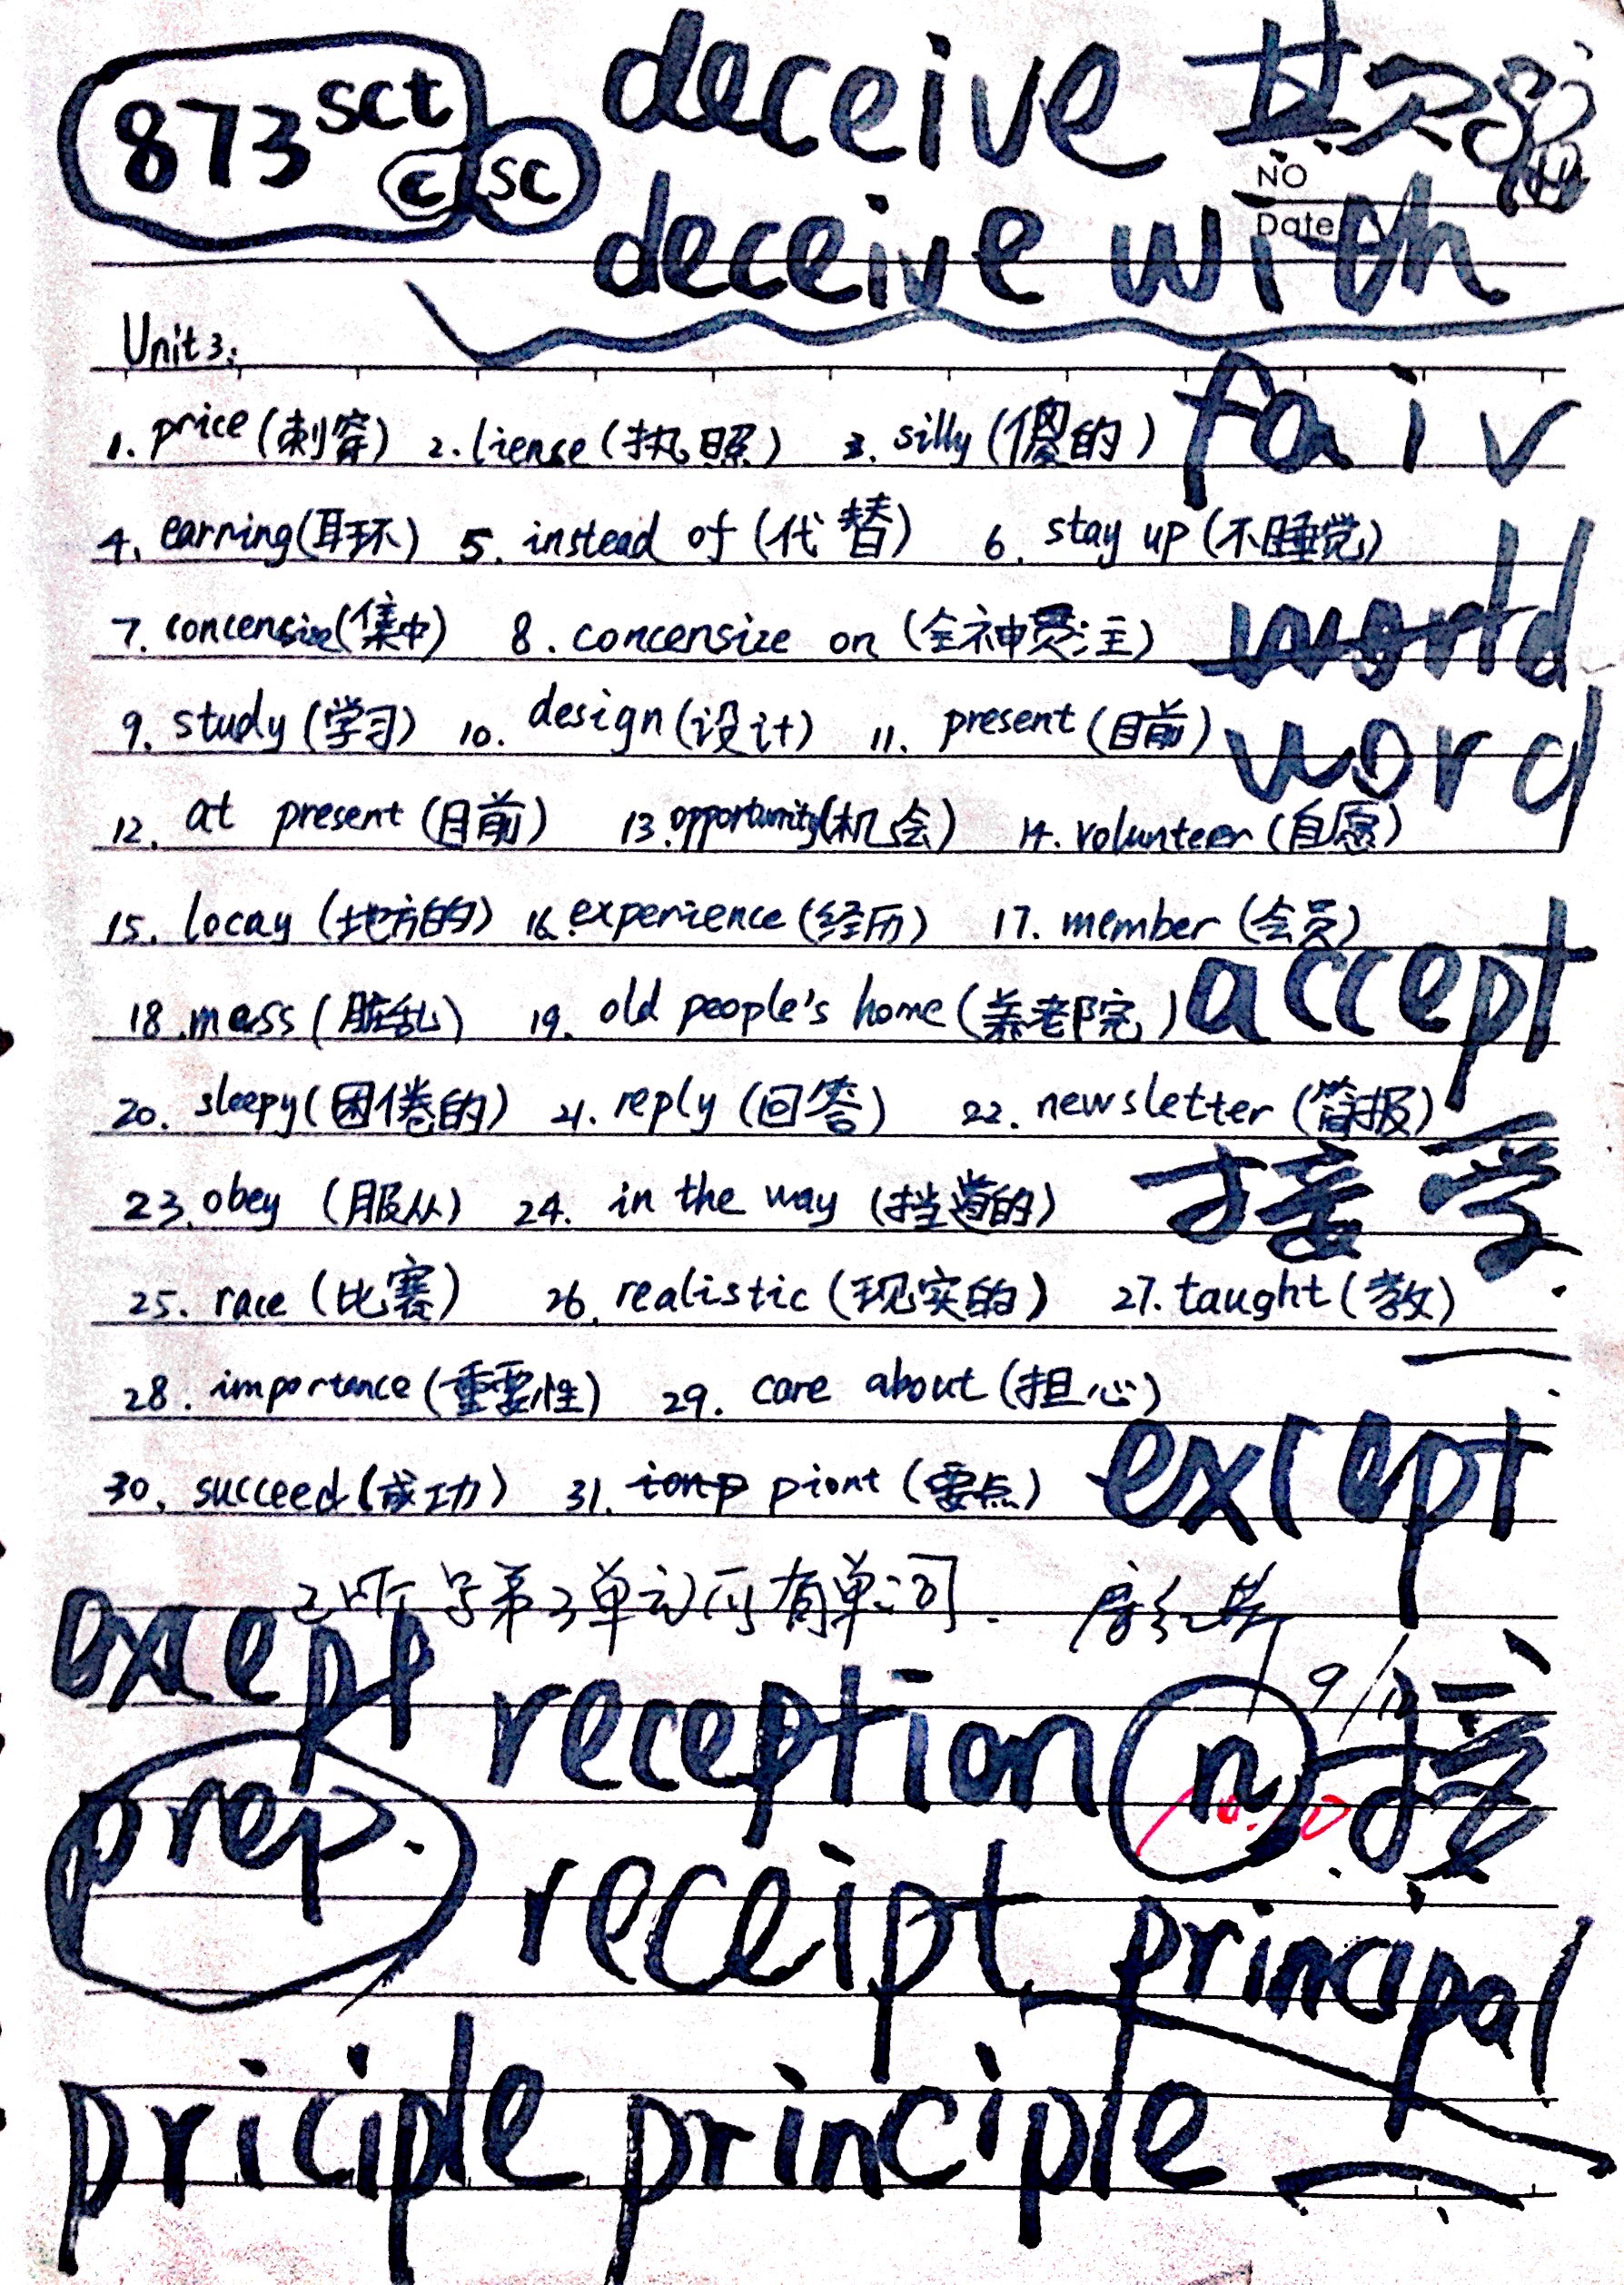 873 sct c sc
deceive
NO
deceive with
Date
Unit 3:
1. price (刺穿) 2. liense (执照) 3. silly (傻的) fair
4. earning (耳环) 5. instead of (代替) 6. stay up (不睡觉)
7. concensize (集中) 8. concensize on (全神贯注) world
9. study (学习) 10. design (设计) 11. present (目前) word
12. at present (目前) 13. opportunity (机会) 14. volunteer (自愿)
15. locay (地方的) 16. experience (经历) 17. member (会员)
18. mess (脏乱) 19. old people's home (养老院) accept
20. sleepy (困倦的) 21. reply (回答) 22. newsletter (简报)
23. obey (服从) 24. in the way (挡道的) 接受
25. race (比赛) 26. realistic (现实的) 27. taught (教)
28. importance (重要性) 29. care about (担心)
30. succeed (成功) 31. piont (要点) except
已听写第3单元所有单词.
except reception n 接
9/10
prep. receipt principal
priciple principle